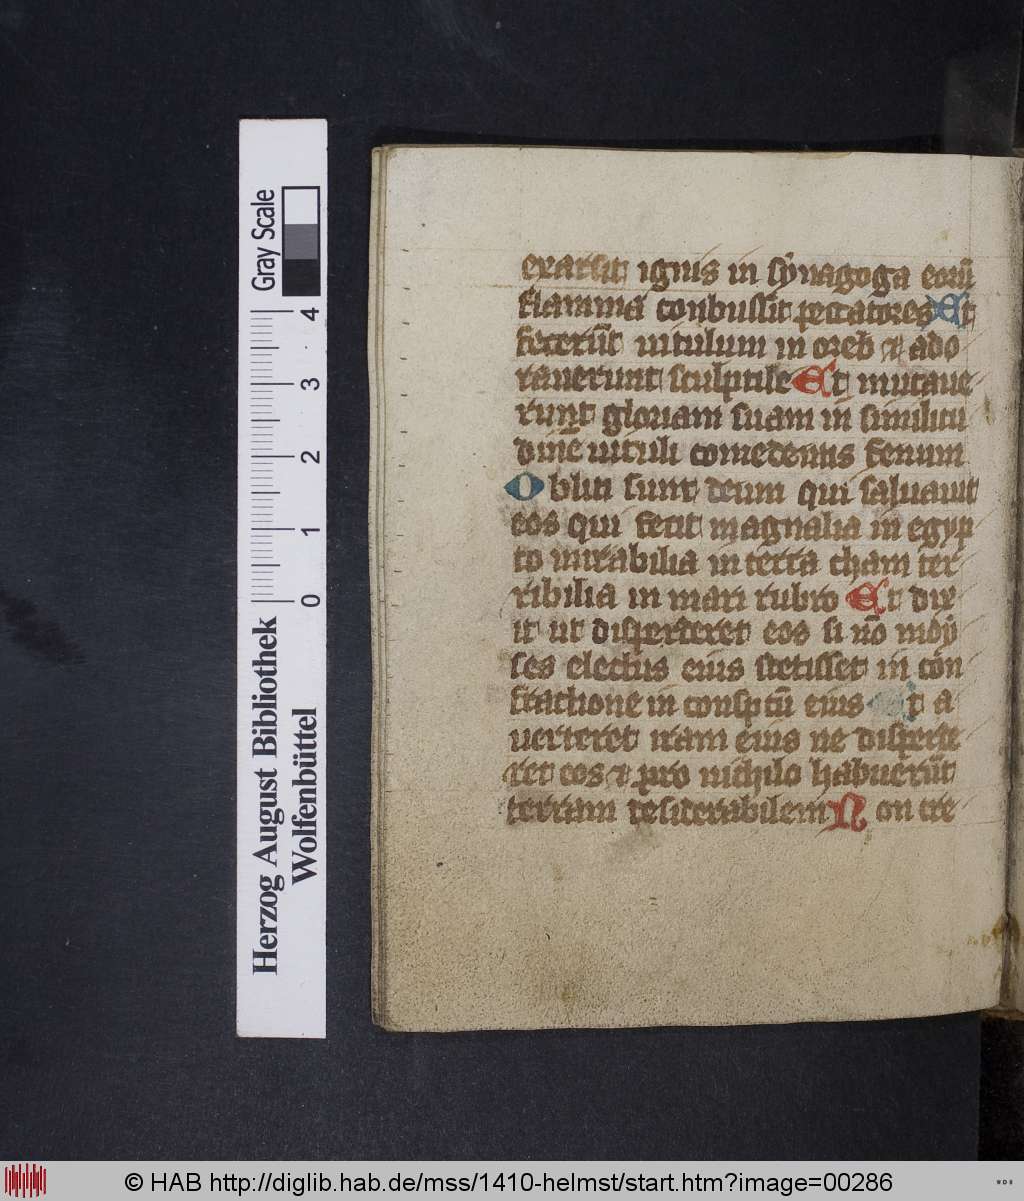 Gray Scale
4
3
2
1
0
Herzog August Bibliothek
Wolfenbüttel
exarsit ignis in sÿnagoga eorū
flamma conbussit peccatores Et
fecerūt uitulum in oreb et ado
rauerunt sculptile Et mutaue
runt gloriam suam in similitu
dinē uituli comedentis fenum
Obliti sunt deum qui saluauit
eos qui fecit magnalia in egyp
to mirabilia in terra cham ter
ribilia in mari rubro Et dix
it ut disperderet eos si nō moÿ
ses electus eius stetisset in con
fractione in conspectū eius Et a
uerteret iram eius ne disperde
ret eos et pro nichilo habuerūt
terram desiderabilem Non cre
© HAB http://diglib.hab.de/mss/1410-helmst/start.htm?image=00286